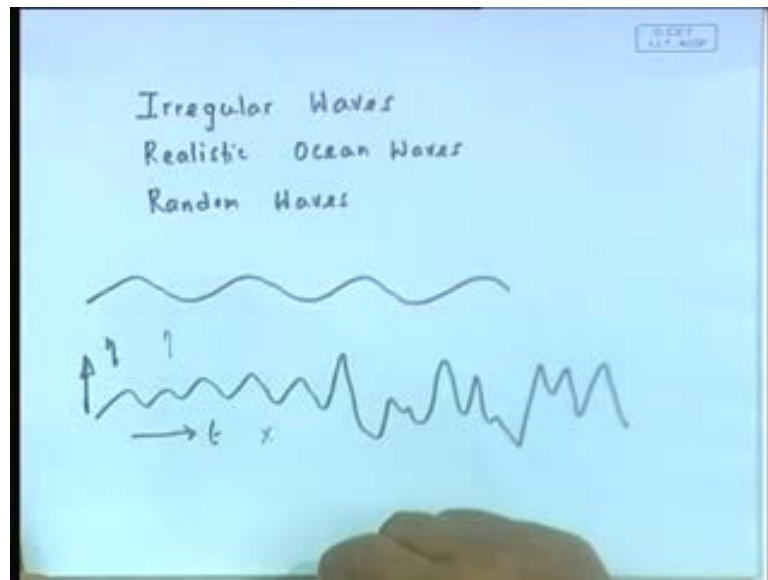 Irregular Waves
Realistic Ocean Waves
Random Waves
η η
t x